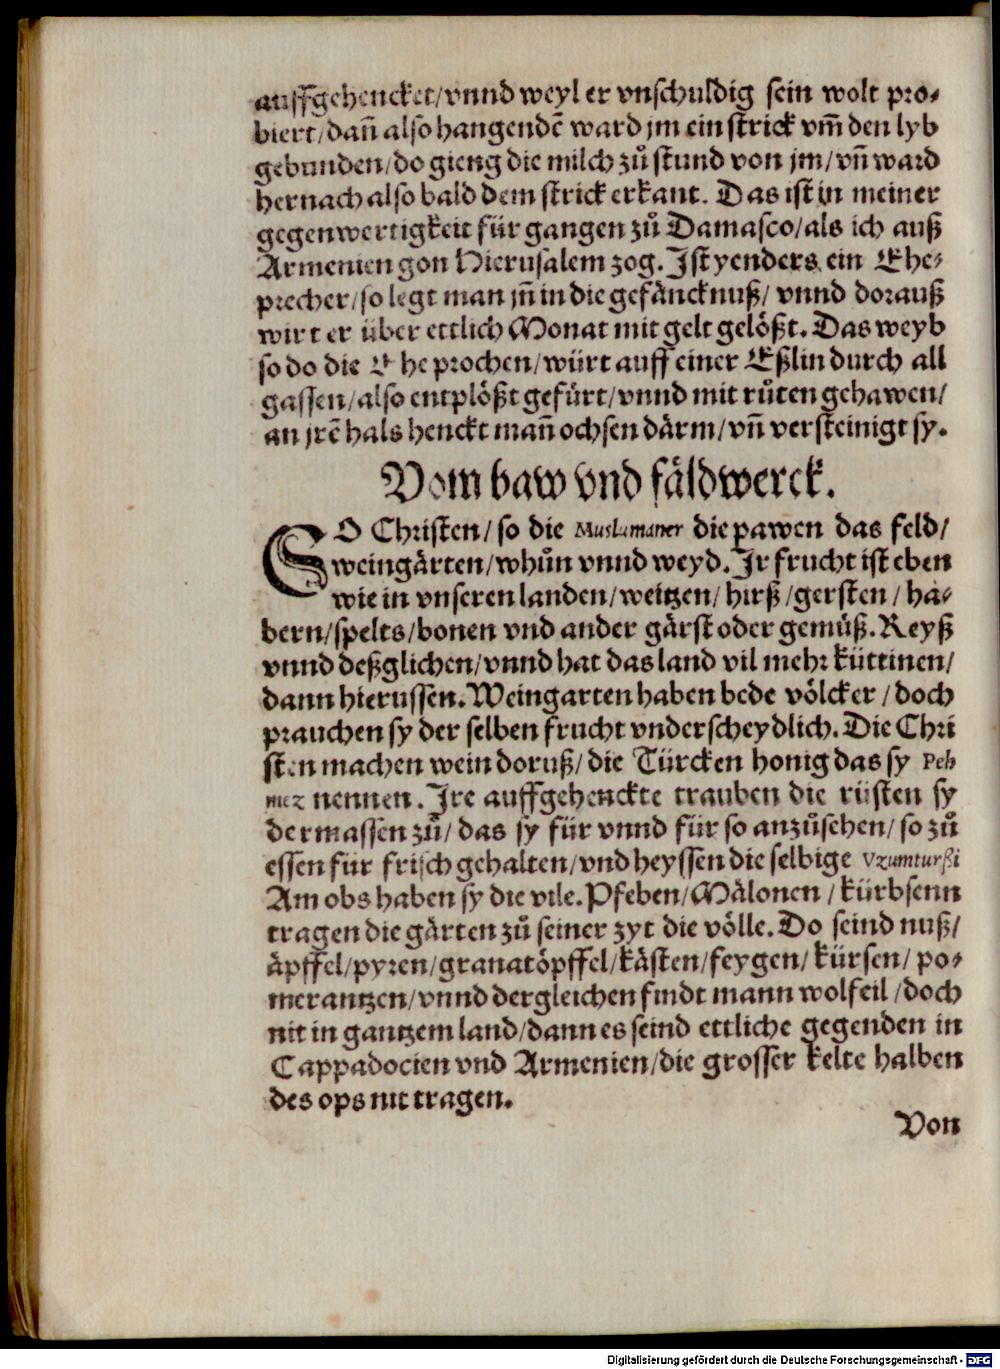 auffgehencket/vnnd weyl er vnschuldig sein wolt pro-
biert/dañ also hangendẽ ward jm ein strick vm̃ den lyb
gebunden/do gieng die milch zů stund von jm/vñ ward
hernach also bald dem strick erkant. Das ist in meiner
gegenwertigkeit für gangen zů Damasco/als ich auß
Armenien gon Hierusalem zog. Ist yenders ein Ehe-
precher/so legt man jñ in die gefäncknuß/ vnnd dorauß
wirt er über ettlich Monat mit gelt gelößt. Das weyb
so do die Ehe prochen/würt auff einer Eßlin durch all
gassen/also entplößt gefürt/vnnd mit růten gehawen/
an jrẽ hals henckt mañ ochsen därm/vñ versteinigt sy.
Vom baw vnd fäldwerck.
SO Christen/so die Muslumaner die pawen das feld/
weingärten/whůn vnnd weyd. Ir frucht ist eben
wie in vnseren landen/weitzen/hirß/gersten/ha-
bern/spelts/bonen vnd ander gärst oder gemüß. Reyß
vnnd deßglichen/vnnd hat das land vil mehr küttinen/
dann hierussen. Weingarten haben bede völcker/doch
prauchen sy der selben frucht vnderscheydlich. Die Chri
sten machen wein doruß/die Türcken honig das sy Peh
mez nennen. Ire auffgehenckte trauben die rüsten sy
dermassen zů/das sy für vnnd für so anzůsehen/so zů
essen für frisch gehalten/vnd heyssen die selbige Vzumturßi
Am obs haben sy die vile. Pfeben/Mälonen/kürbsenn
tragen die gärten zů seiner zyt die völle. Do seind nuß/
äpffel/pyren/granatöpffel/kästen/feygen/kürsen/po-
merantzen/vnnd dergleichen findt mann wolfeil/doch
nit in gantzem land/dann es seind ettliche gegenden in
Cappadocien vnd Armenien/die grosser kelte halben
des ops nit tragen.
Von
Digitalisierung gefördert durch die Deutsche Forschungsgemeinschaft - DFG